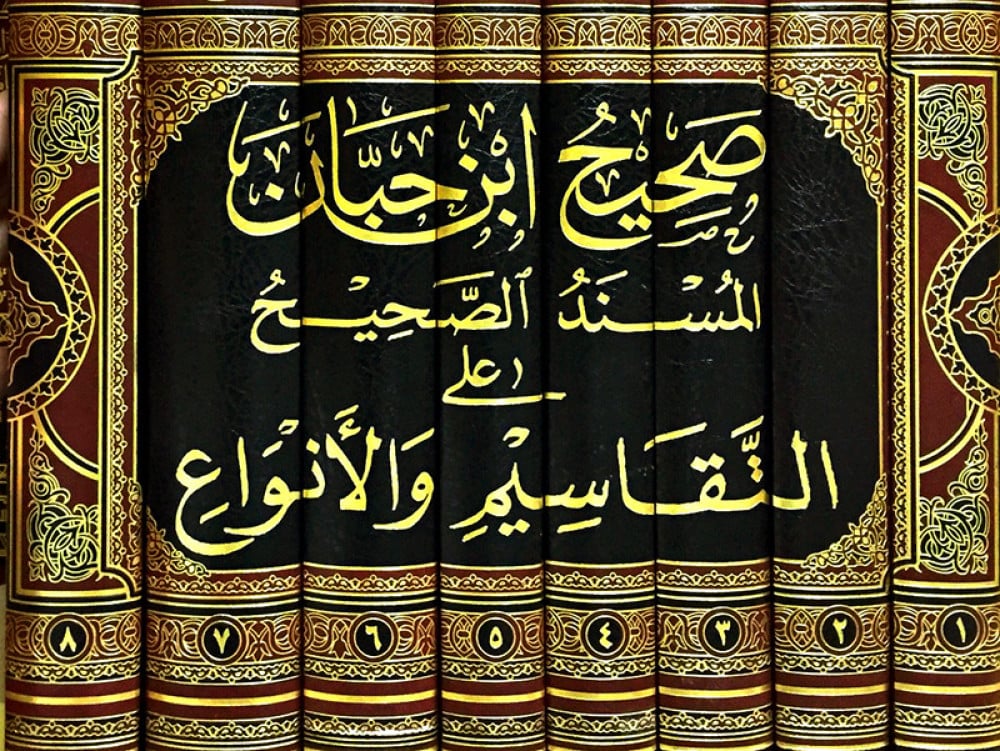 صَحِيحُ ابْنِ حِبَّان
المُسْنَدُ الصَّحِيْحُ
عَلى
التَّقَاسِيْمِ وَالأَنْوَاعِ
١ ٢ ٣ ٤ ٥ ٦ ٧ ٨